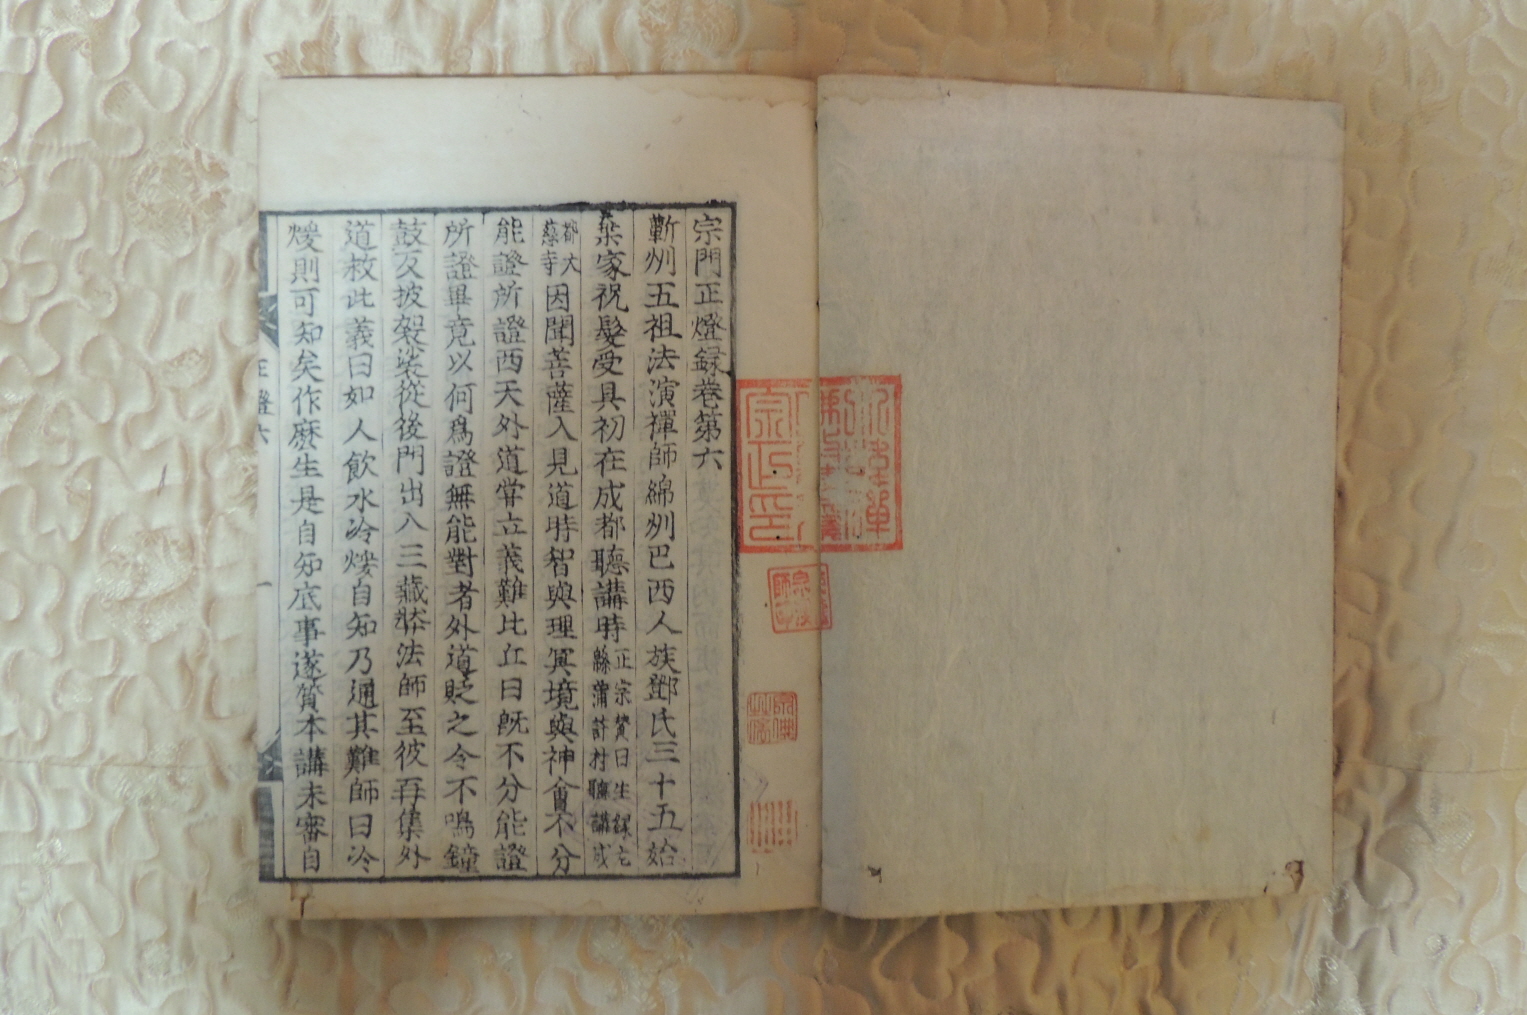 宗門正燈録巻第六
蘄州五祖法演禪師綿州巴西人族鄧氏三十五始
棄家祝髮受具初在成都聽講時
正宗賛曰生縁在
緜蒲許村聽講成
都大
慈寺
因聞菩薩入見道時智與理冥境與神會不分
能證所證西天外道甞立義難比丘曰既不分能證
所證畢竟以何爲證無能對者外道貶之令不鳴鐘
鼓反披袈裟從後門出入三藏奘法師至彼再集外
道救此義曰如人飮水冷煖自知乃通其難師曰冷
煖則可知矣作麽生是自知底事遂質本講未審自
正燈六
一